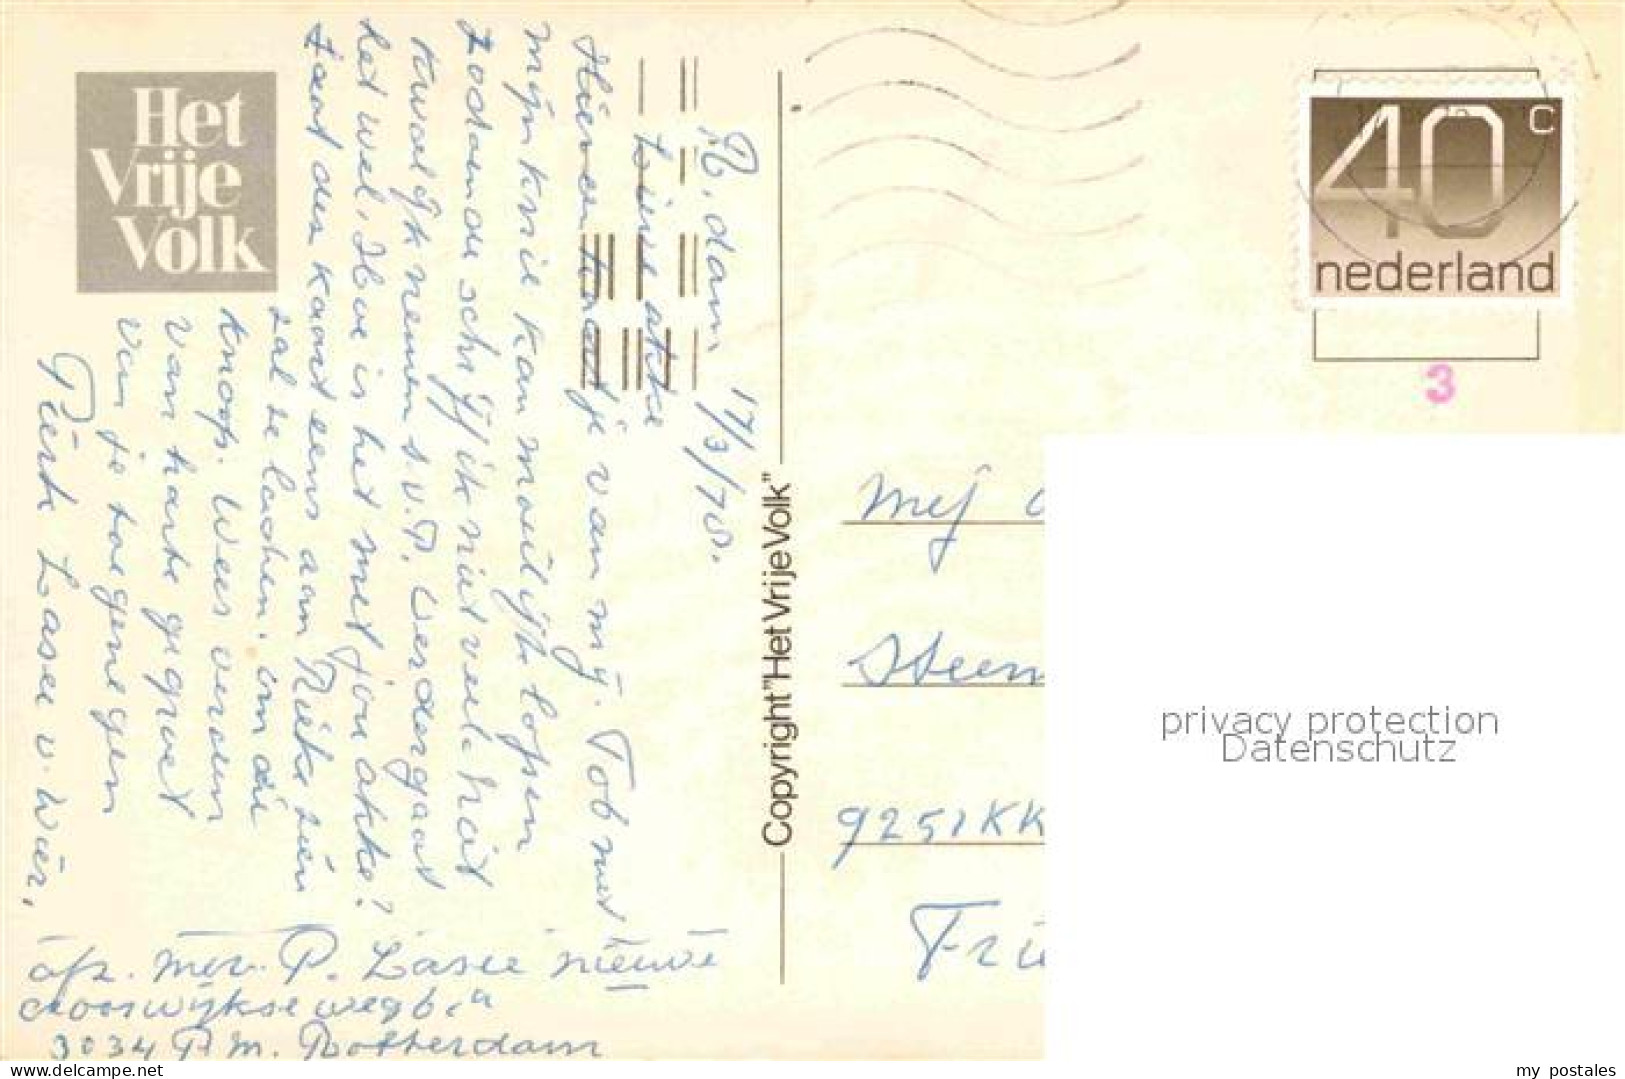 Het
Vrije
Volk
R.dam 17/3/78.
Lieve akke
Hier een kaartje van mij. Tob met
mijn knie kan moeilijk lopen
zodoende schrijf ik niet veel. Niet
kwalijk nemen s.v.P. Verder gaat
het wel. Hoe is het met jou akke?
Laat den kaart eens aan Rieke zien
zal ze lachen. om die
knoop. Wees verder
van harte gegroet
van je toegenegen
Piets Lasee v. Wier,
afz. Mev. P. Lasee nieuwe
Crooswijkse weg 6.a
3034 P.M. Rotterdam
Copyright "Het Vrije Volk"
40 c
nederland
3
Mej
Steen
9251KK
Frie
privacy protection
Datenschutz
www.delcampe.net
my_postales